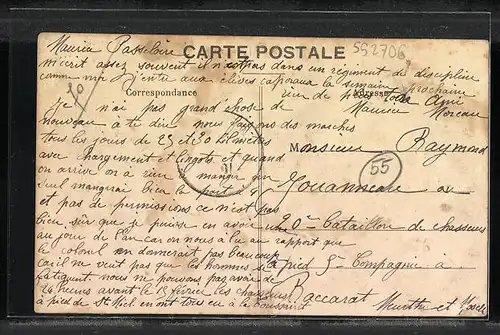 Maurice Passeloire
CARTE POSTALE
592706
m'écrit assez souvent il n'est pas dans un régiment de discipline
comme moi j'entre aux élèves caporaux la semaine prochaine
20
Correspondance
Adresse
rien de Ami
Maurice Moreau
je n'ai pas grand chose de
nouveau à te dire nous faisons des marches
tous les jours de 25 et 30 kilomètres
avec chargement et quand
on arrive on a rien à manger
mangrai bien le
et pas de permissions ce n'est pas
bien sûr que je puisse en avoir
au jour de l'an car on nous a lu au rapport que
le colonel en donnerait pas beaucoup
car il ne veut pas que les hommes se
fatiguent nous ne pouvons pas avoir de
24 heures avant le février les chasseurs
à pied de St Miel en ont tous eu à la Toussaint
Monsieur Raymond
55
Mouanneau au
20e Bataillon de chasseurs
à pied 5e Compagnie à
Baccarat
Meurthe et Mosele